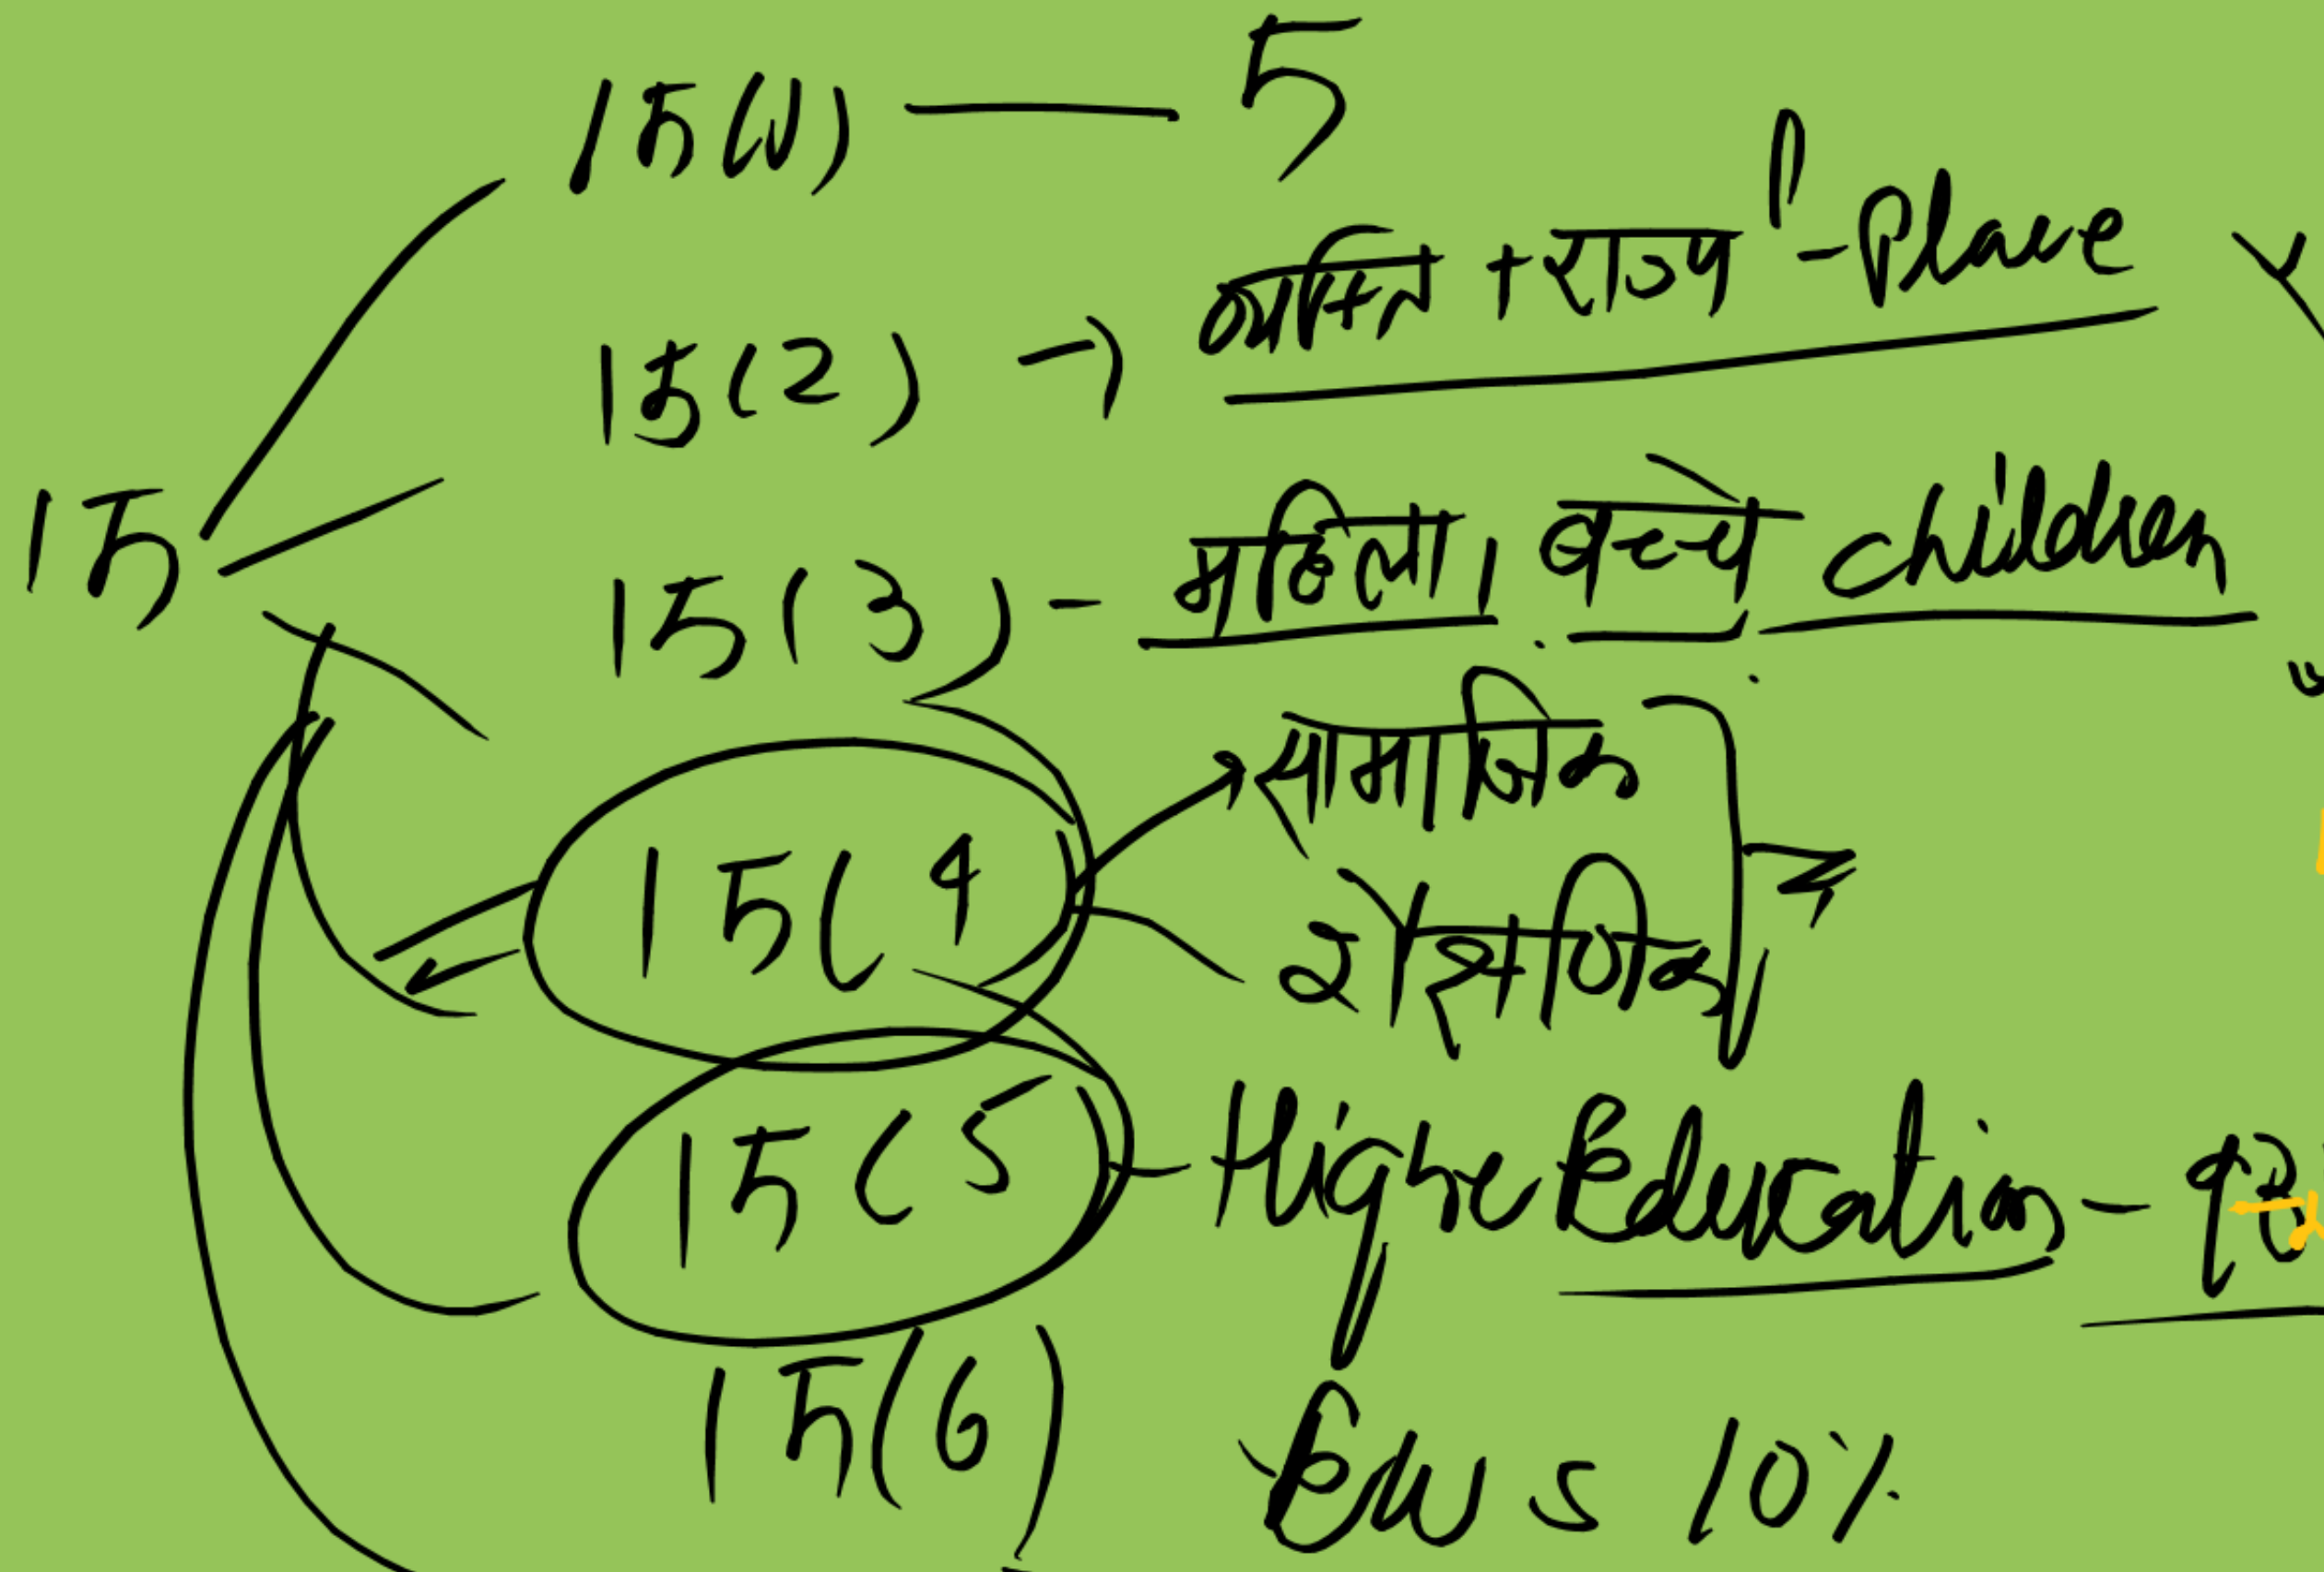 15(1) — 5
15(2) → व्यक्ति + राज्य - Place
15
15(3) - महिला। बच्चे children
15(4) सामाजिक
शैक्षणिक
15(5) - Higher Education -
15(6) EWS 10%